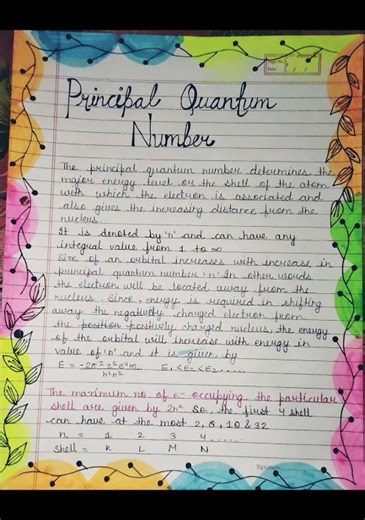 Principal Quantum
Number
The principal quantum number determines the
major energy level or the shell of the atom
with which the electron is associated and
also gives the increasing distance from the
nucleus.
It is denoted by 'n' and can have any
integral value from 1 to ∞
Size of an orbital increases with increase in
principal quantum number 'n'. In other words
the electron will be located away from the
nucleus. Since, energy is required in shifting
away the negatively charged electron from
the position positively charged nucleus, the energy
of the orbital will increase with energy in
value of 'n' and it is given by
E = -2π²z²e⁴m / h²n² E₁<E₂<E₃.....
The maximum no of e⁻ occupying the particular
shell are given by 2n². So, the first 4 shell
can have at the most 2, 8, 18 & 32
n = 1 2 3 4.....
Shell = K L M N